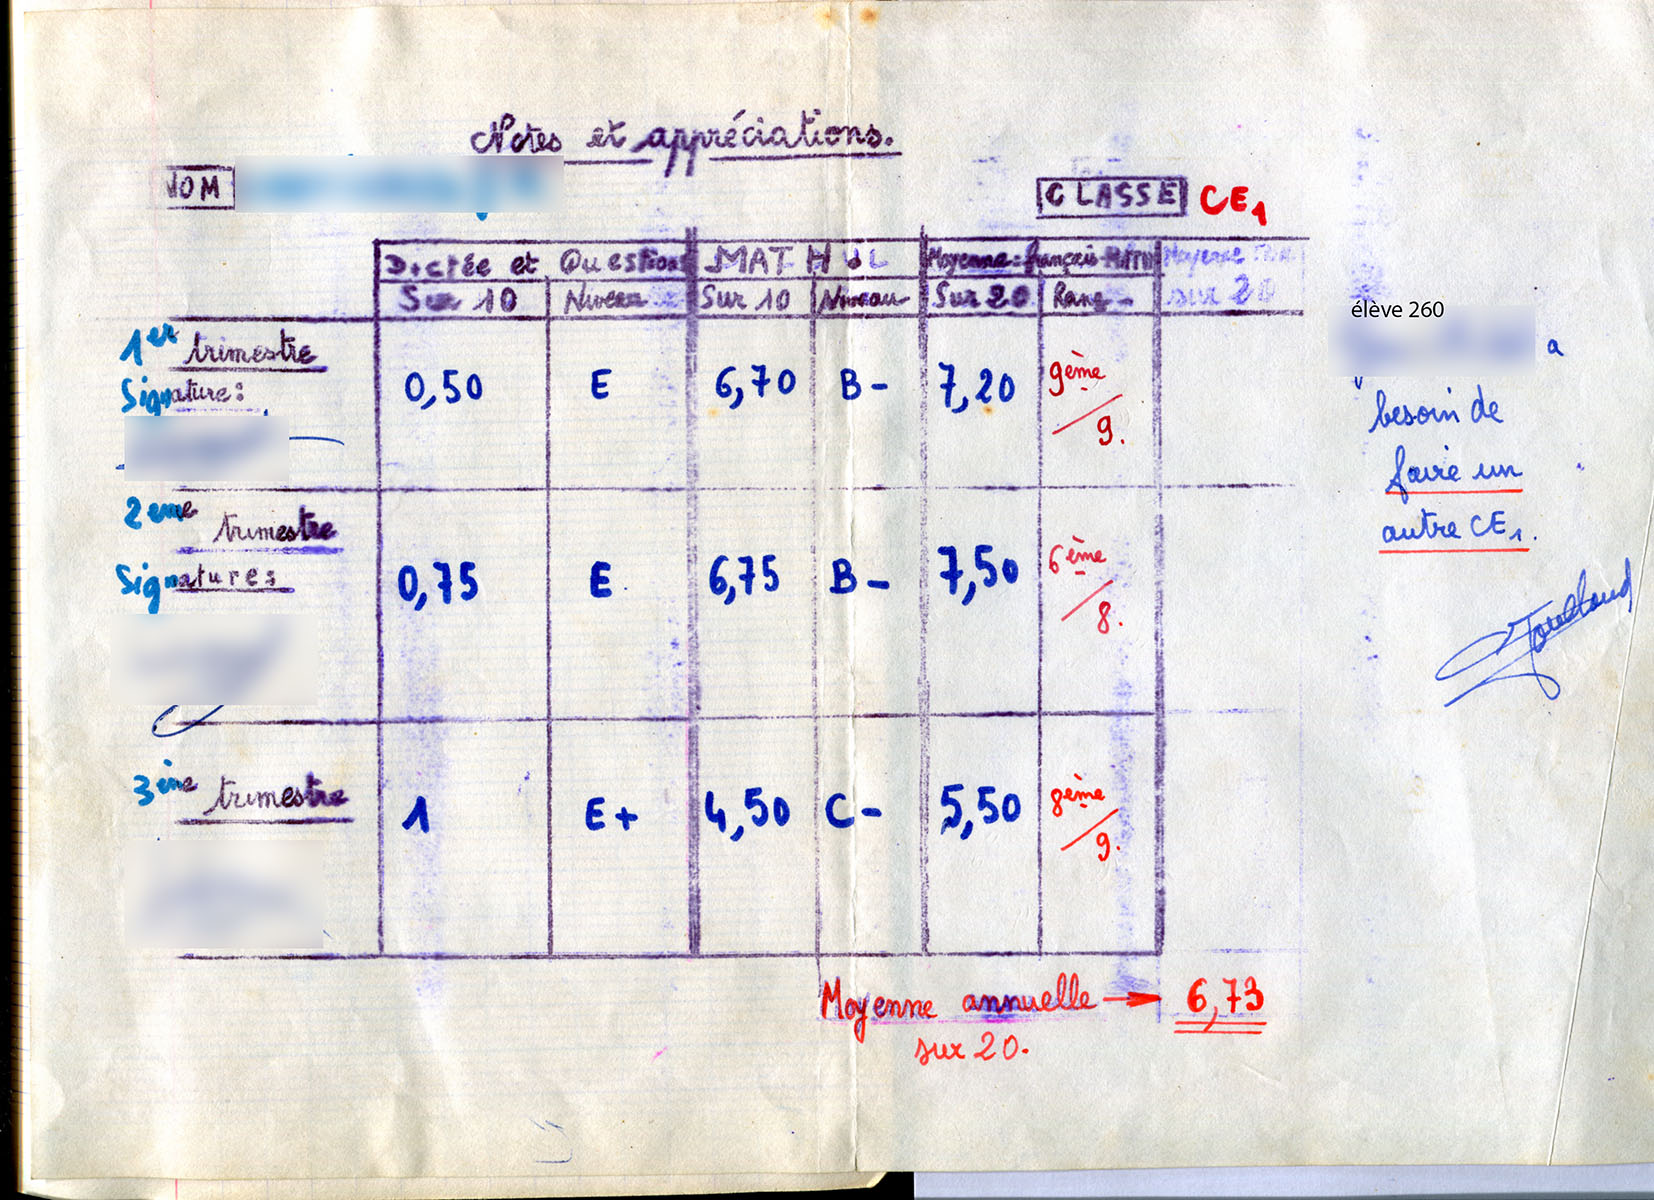 Notes et appréciations.
NOM
CLASSE CE1
Dictée et Questions MATH Moyenne: français-Math Moyenne
Sur 10 Niveau Sur 10 Niveau Sur 20 Rang sur 20
1er trimestre
Signature:
0,50 E 6,70 B- 7,20 9ème/9.
2eme trimestre
Signatures
0,75 E 6,75 B- 7,50 6ème/8.
3ème trimestre
1 E+ 4,50 C- 5,50 8ème/9.
Moyenne annuelle → 6,73
sur 20.
élève 260
a
besoin de
faire un
autre CE1.